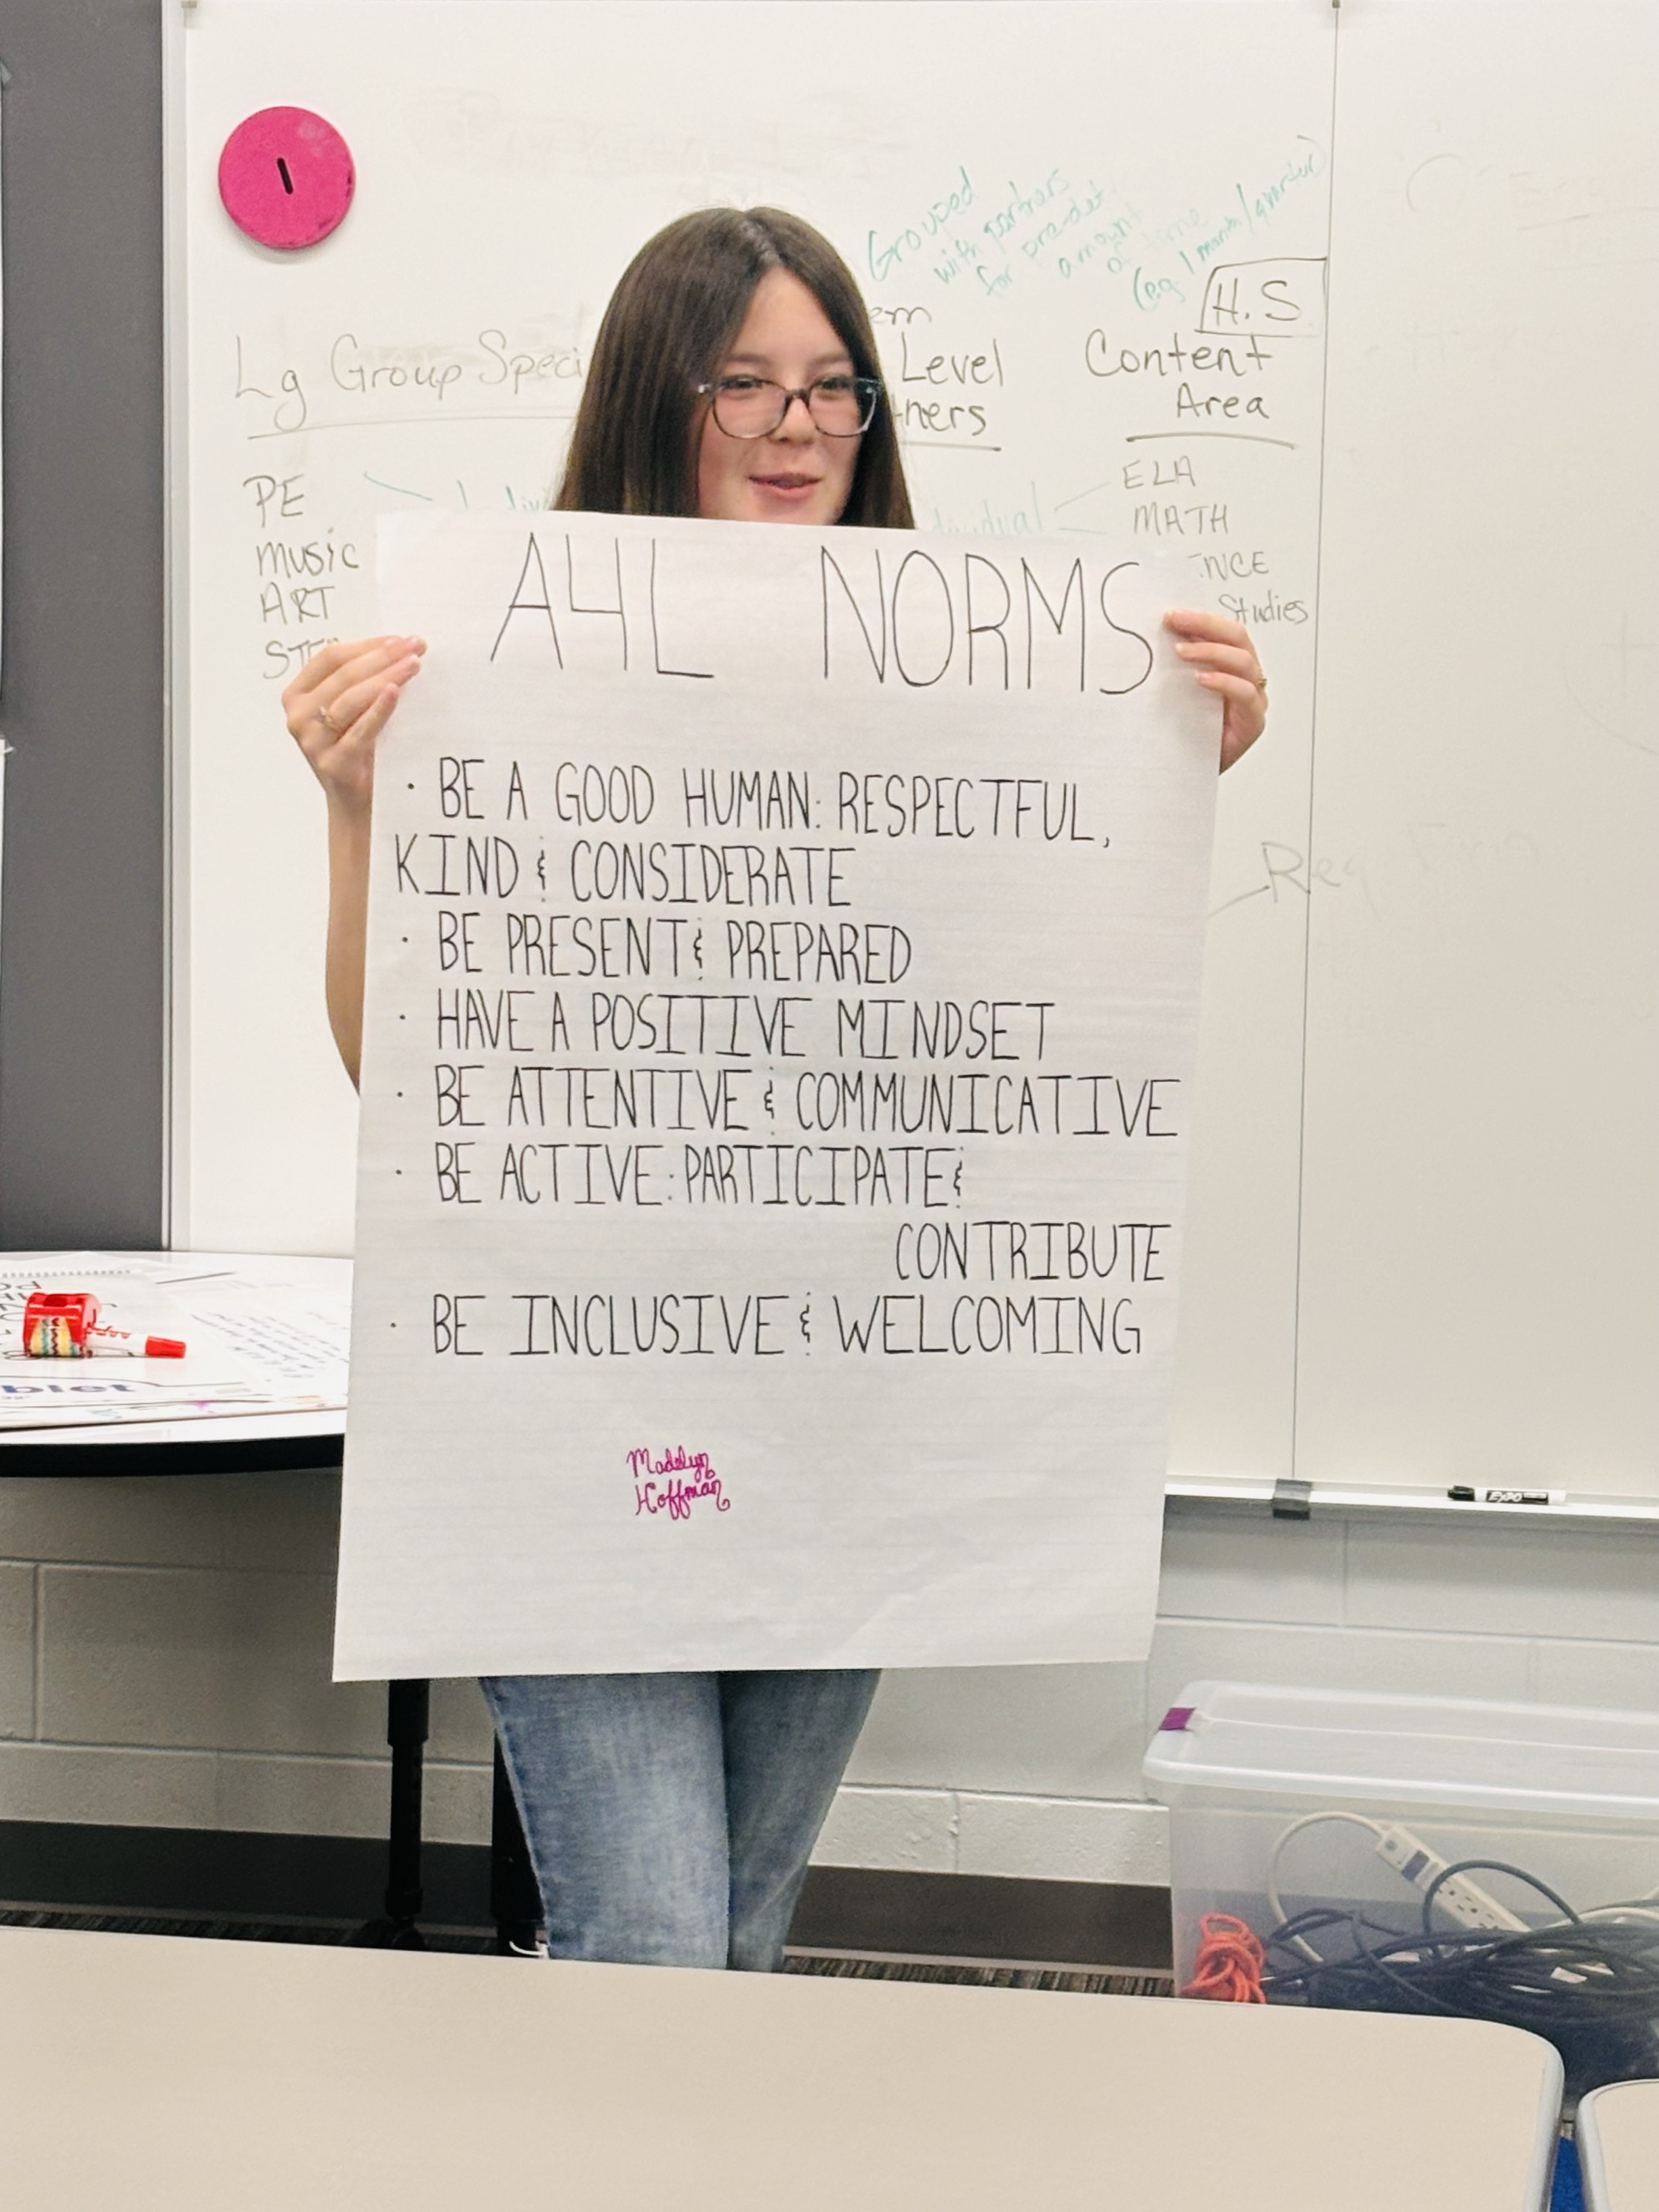 Grouped
with partners
for pre-det.
amount
of time
(eg 1 month/quarter)
H.S
Lg Group Speci
em
Level
tners
Content
Area
PE
music
ART
Indiv
dividual
ELA
MATH
NCE
Studies
A4L NORMS
· BE A GOOD HUMAN: RESPECTFUL,
KIND & CONSIDERATE
· BE PRESENT & PREPARED
· HAVE A POSITIVE MINDSET
· BE ATTENTIVE & COMMUNICATIVE
· BE ACTIVE: PARTICIPATE &
CONTRIBUTE
· BE INCLUSIVE & WELCOMING
Madelyn
Hoffman
Reg
blet
EXPO